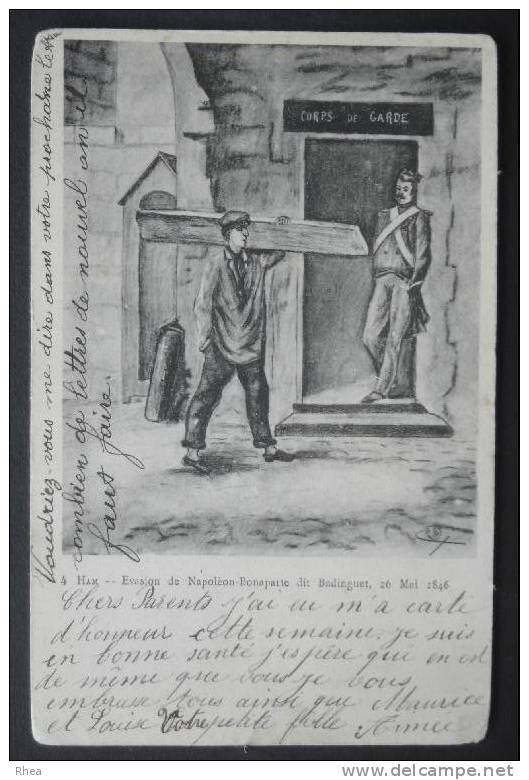 CORPS DE GARDE
Voudriez-vous me dire dans votre prochaine let
combien de lettres de nouvel an il
faut faire.
4 HAM -- Evasion de Napoléon-Bonaparte dit Badinguet, 26 Mai 1846
Chers Parents J'ai eu m'a carte
d'honneur cette semaine, je suis
en bonne santé j'espère qui en est
de même que vous je vous
embrasse tous ainsi que Maurice
et Louise Votre petite fille
Rhea
www.delcampe.net